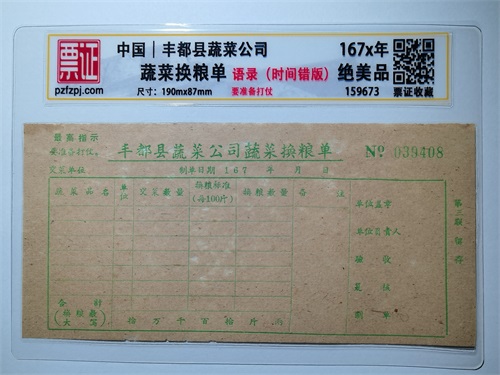 票证
pzfzpj.com
中国｜丰都县蔬菜公司
蔬菜换粮单 语录（时间错版）
尺寸：190mmx87mm 要准备打仗
167x年
绝美品
159673
票证收藏
最高指示
要准备打仗。
丰都县蔬菜公司蔬菜换粮单
№ 039408
交菜单位
制单日期 167 年 月 日
蔬菜品名 单位 交菜数量 换粮标准（每100斤） 换粮数量 备注
单位盖章
单位负责人
验收
复核
制单
第三联 留存
合计
（换粮数大写）
拾万千百拾斤两